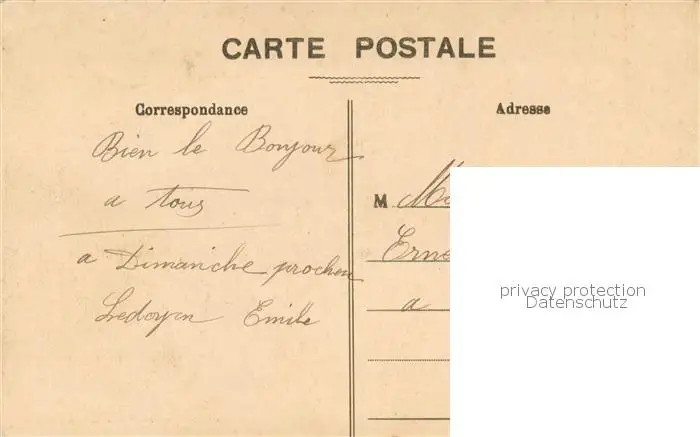 CARTE POSTALE
Correspondance
Adresse
Bien le Bonjour
a tous
a Dimanche prochen
Ledoyen Emile
M
Erne
a
privacy protection
Datenschutz